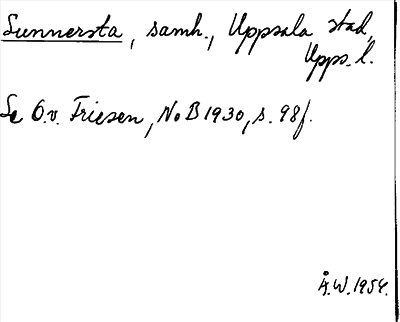 Sunnersta, samh., Uppsala stad,
Upps. l.
Se O.v. Friesen, NoB 1930, s. 98f.
Å.W. 1954.